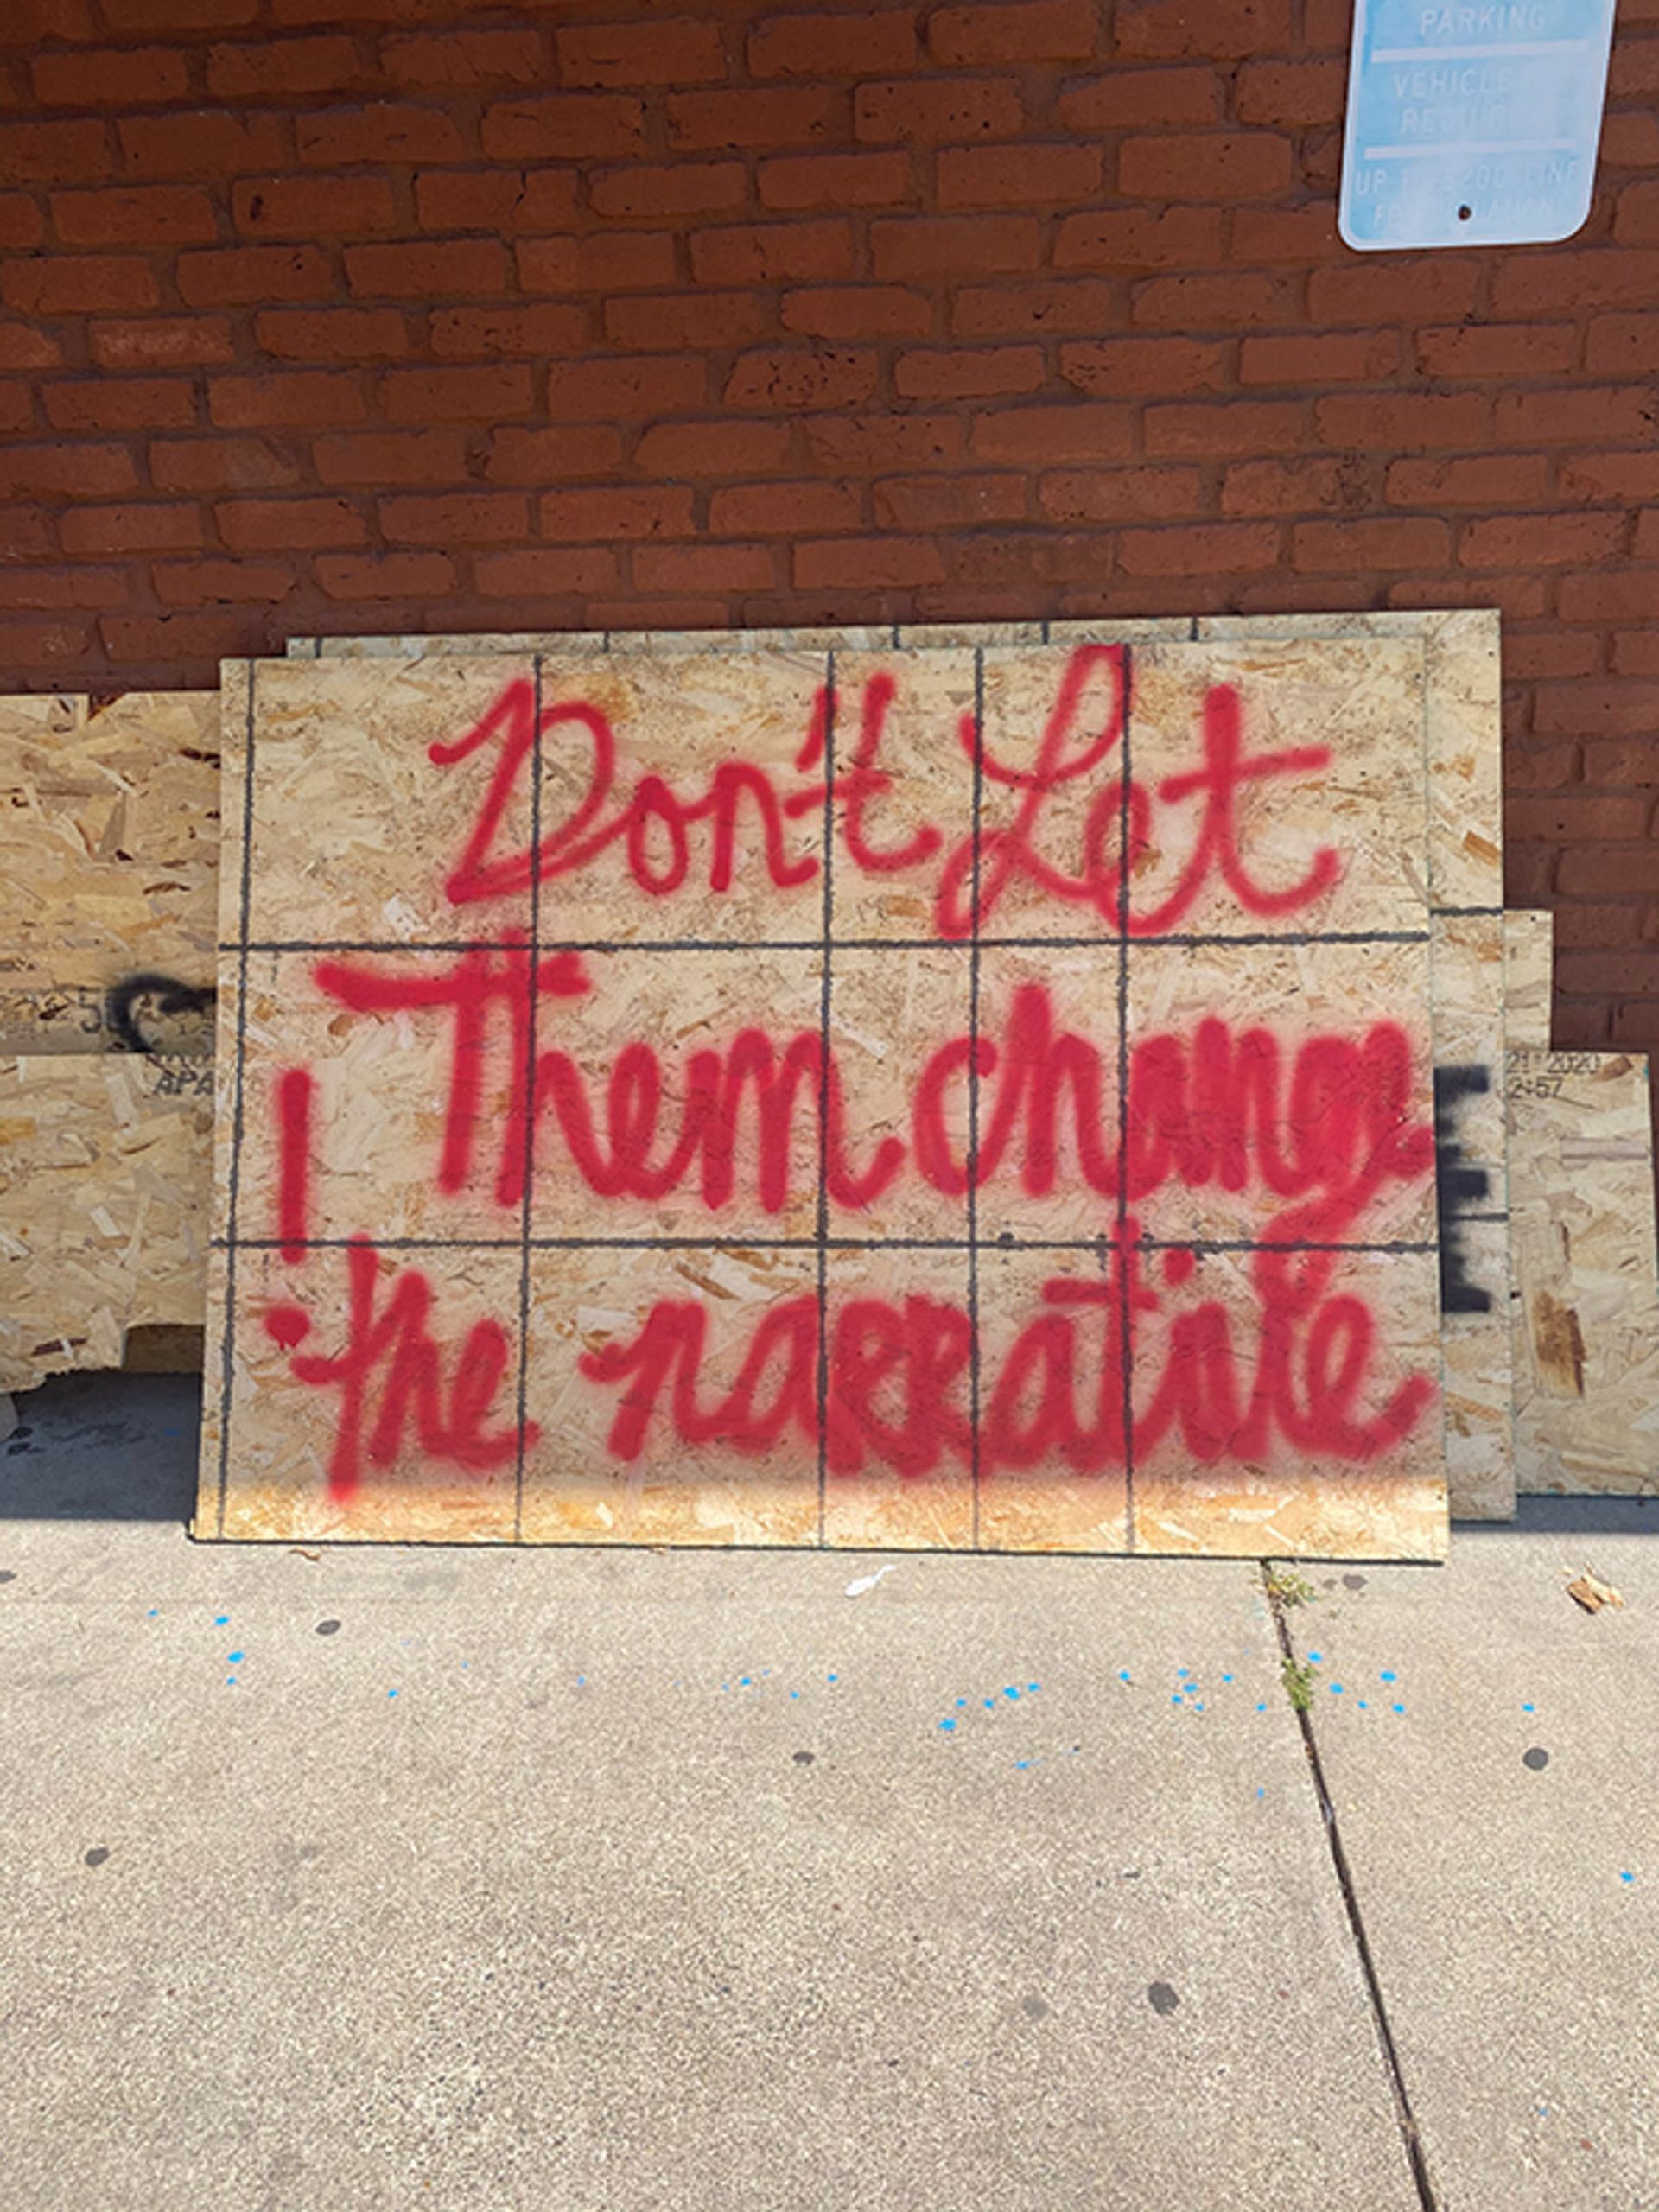 PARKING
VEHICLE
REQUIR
UP TO $200 FINE
FOR VIOLATION
Don't Let
Them change
! the narrative
APA
21 2020
2:57